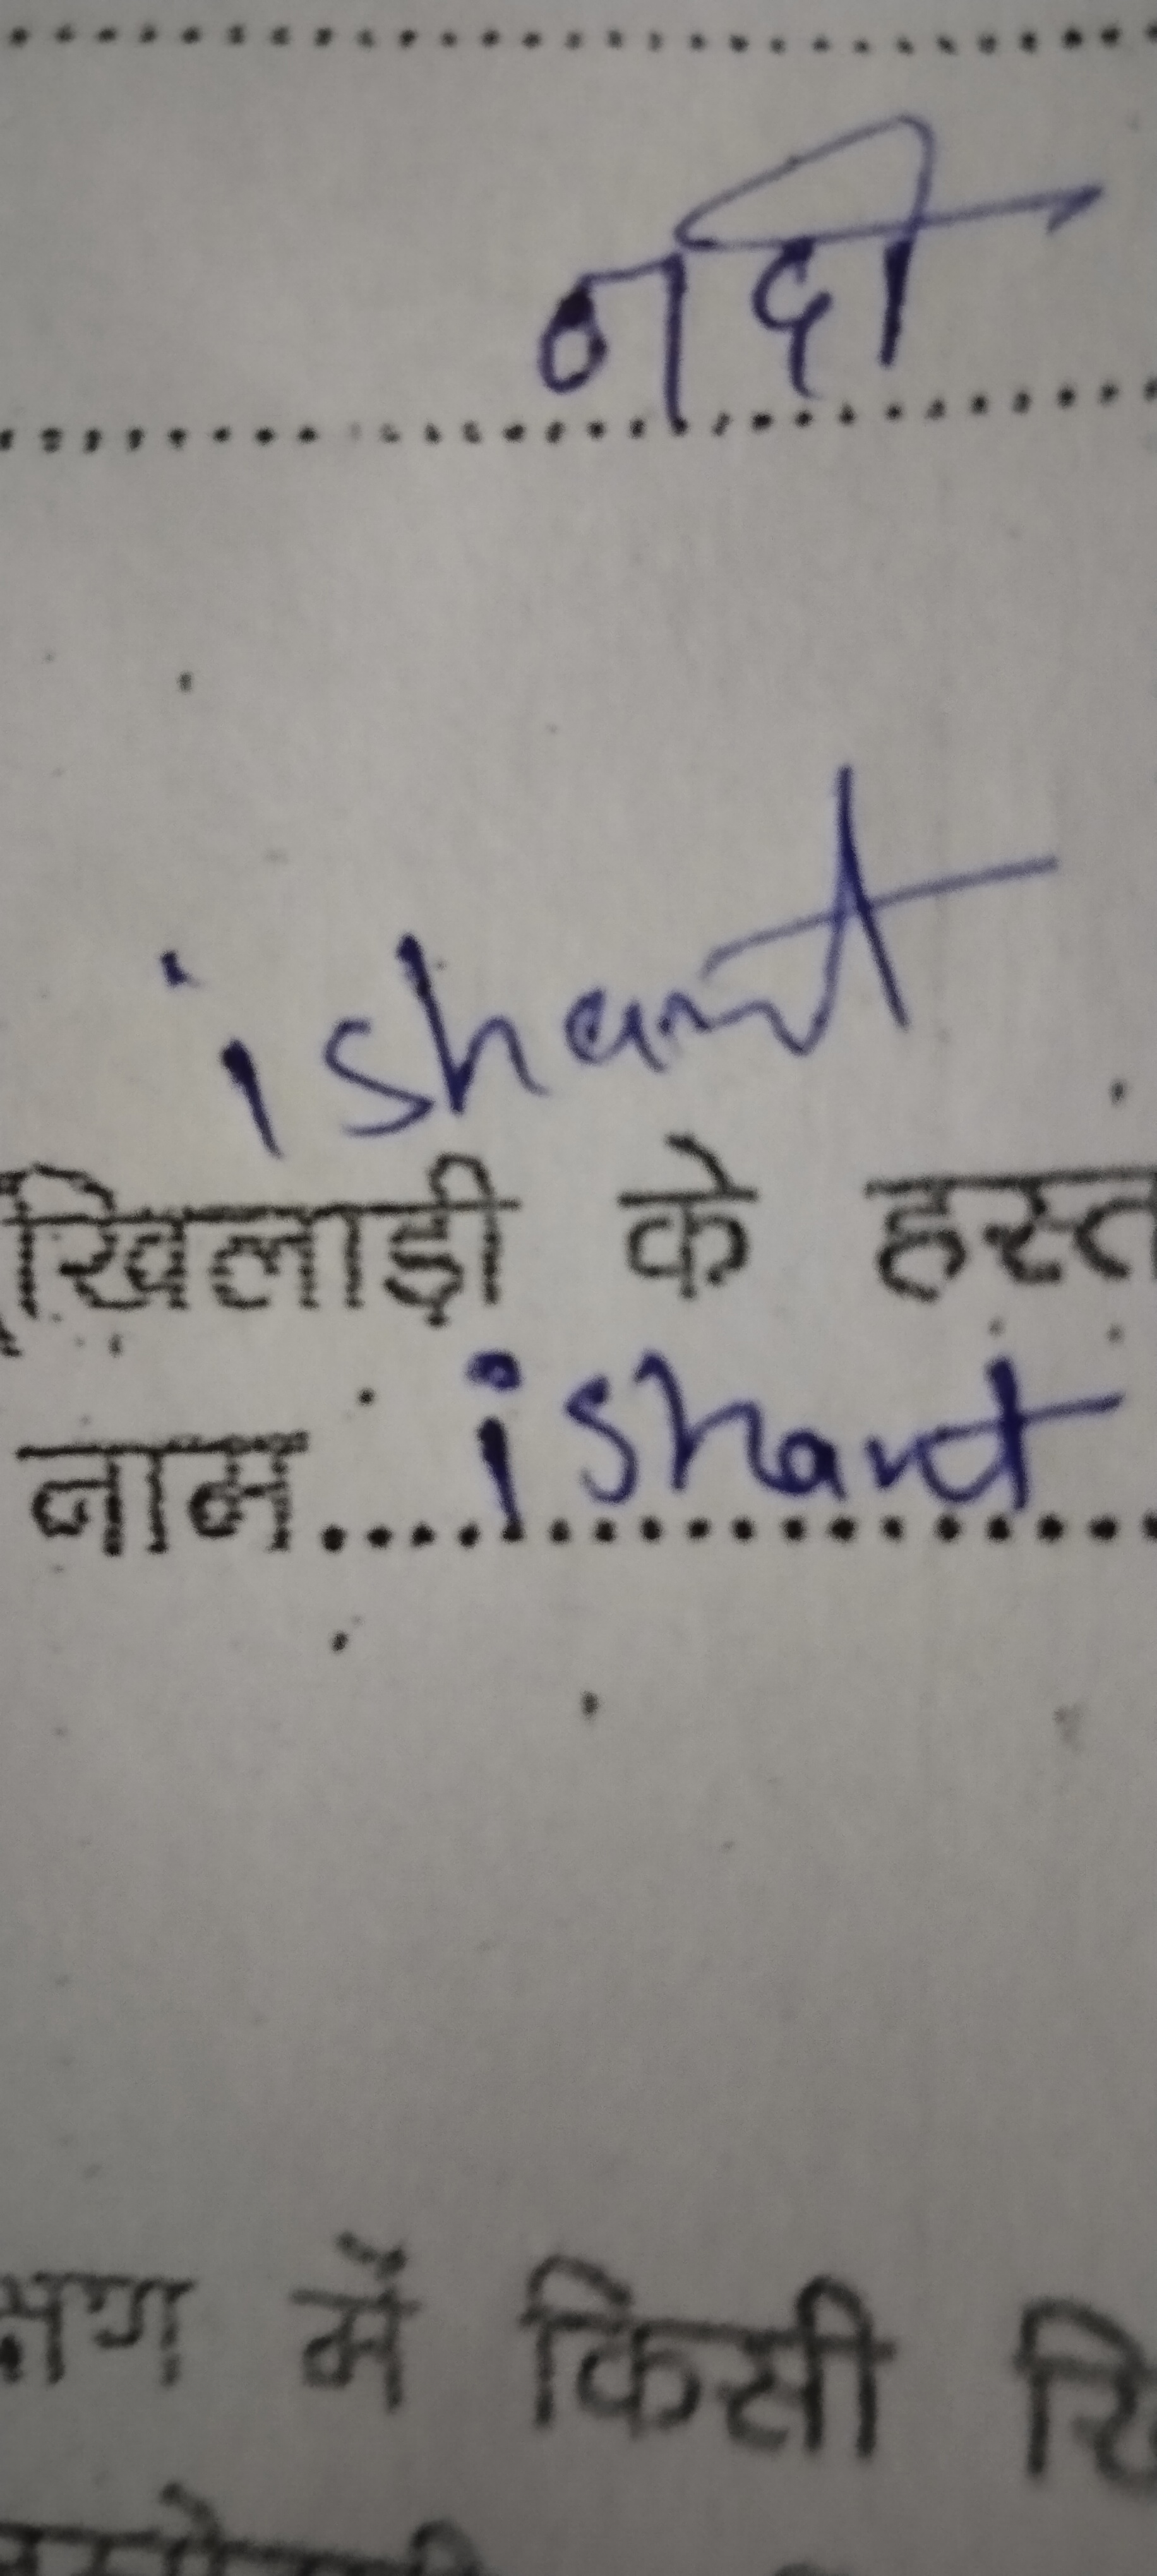 नदी
ishant
खिलाड़ी के हस्त
नाम ishant
क्षण में किसी खि